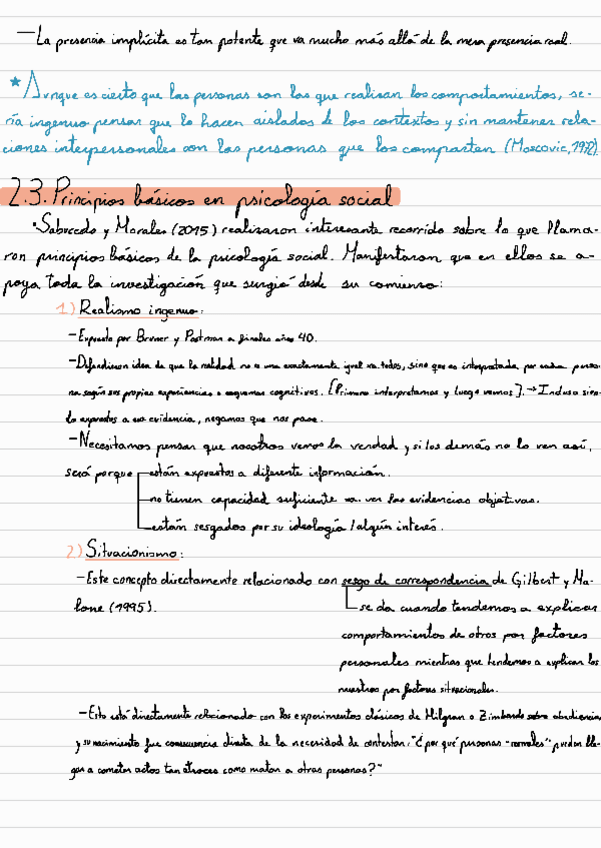 —La presencia implícita es tan potente que va mucho más allá de la mera presencia real.
* Aunque es cierto que las personas son las que realizan los comportamientos, se-
ría ingenuo pensar que lo hacen aislados de los contextos y sin mantener rela-
ciones interpersonales con las personas que los comparten (Moscovic, 1972).
2.3. Principios básicos en psicología social
Sabucedo y Morales (2015) realizaron interesante recorrido sobre lo que llama-
ron principios básicos de la psicología social. Manifestaron que en ellos se a-
poya toda la investigación que surgió desde su comienzo:
1) Realismo ingenuo:
—Expuesto por Bruner y Postman a finales años 40.
—Defendieron idea de que la realidad no es una exactamente igual xa todos, sino que es interpretada por cada perso-
na según sus propias experiencias o esquemas cognitivos. [Primero interpretamos y luego vemos]. → Incluso sien-
do expuestos a esa evidencia, negamos que nos pase.
—Necesitamos pensar que nosotros vemos la verdad y si los demás no lo ven así,
será porque —están expuestos a diferente información.
—no tienen capacidad suficiente xa ver las evidencias objetivas.
—están sesgados por su ideología / algún interés.
2) Situacionismo:
—Este concepto directamente relacionado con sesgo de correspondencia de Gilbert y Ma-
lone (1995).
se da cuando tendemos a explicar
comportamientos de otros por factores
personales mientras que tendemos a explicar los
nuestros por factores situacionales.
—Esto está directamente relacionado con los experimentos clásicos de Milgran o Zimbardo sobre obediencia
y su nacimiento fue consecuencia directa de la necesidad de contestar: "¿por qué personas "normales" pueden lle-
gar a cometer actos tan atroces como matar a otras personas?"